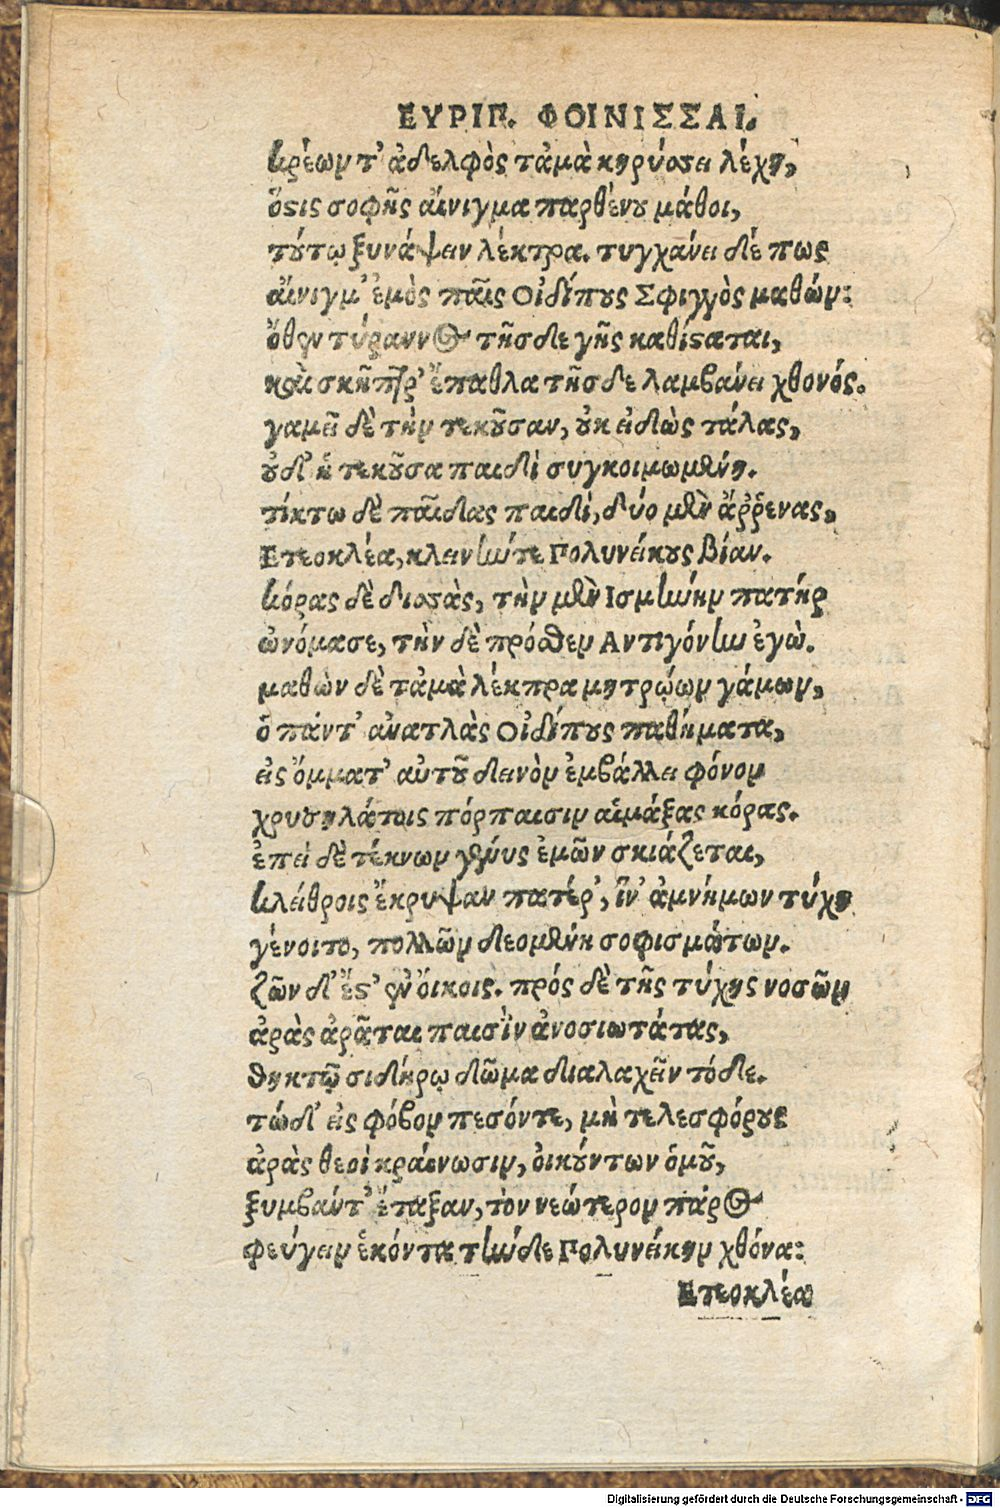 ΕΥΡΙΠ. ΦΟΙΝΙΣΣΑΙ.
κρέων τ' ἀδελφὸς τἀμὰ κηρύσσει λέχη,
ὅστις σοφῆς αἴνιγμα παρθένου μάθοι,
τούτῳ ξυνάψειν λέκτρα. τυγχάνει δέ πως
αἴνιγμ' ἐμὸς παῖς Οἰδίπους Σφιγγὸς μαθών:
ὅθεν τύραννος τῆσδε γῆς καθίσταται,
καὶ σκῆπτρ' ἔπαθλα τῆσδε λαμβάνει χθονός.
γαμεῖ δὲ τὴν τεκοῦσαν, οὐκ εἰδὼς τάλας,
οὐδ' ἡ τεκοῦσα παιδὶ συγκοιμωμένη.
τίκτω δὲ παῖδας παιδί, δύο μὲν ἄῤῥενας,
Ετεοκλέα, κλεινήν τε Πολυνείκους βίαν.
κόρας δὲ δισσὰς, τὴν μὲν Ισμήνην πατὴρ
ὠνόμασε, τὴν δὲ πρόσθεν Αντιγόνην ἐγὼ.
μαθὼν δὲ τἀμὰ λέκτρα μητρῴων γάμων,
ὁ πάντ' ἀνατλὰς Οἰδίπους παθήματα,
εἰς ὄμματ' αὑτοῦ δεινὸν ἐμβάλλει φόνον
χρυσηλάτοις πόρπαισιν αἱμάξας κόρας.
ἐπεὶ δὲ τέκνων γένυς ἐμῶν σκιάζεται,
κλείθροις ἔκρυψαν πατέρ', ἵν' ἀμνήμων τύχη
γένοιτο, πολλῶν δεομένη σοφισμάτων.
ζῶν δ' ἔστ' ἐν οἴκοις. πρός δὲ τῆς τύχης νοσῶν
ἀρὰς ἀρᾶται παισὶν ἀνοσιωτάτας,
θηκτῷ σιδήρῳ δῶμα διαλαχεῖν τόδε.
τώδ' εἰς φόβον πεσόντε, μὴ τελεσφόρους
ἀρὰς θεοὶ κραίνωσιν, οἰκούντων ὁμοῦ,
ξυμβάντ' ἔταξαν, τὸν νεώτερον πάρος
φεύγειν ἑκόντα τήνδε Πολυνείκην χθόνα:
Ετεοκλέα
Digitalisierung gefördert durch die Deutsche Forschungsgemeinschaft - DFG